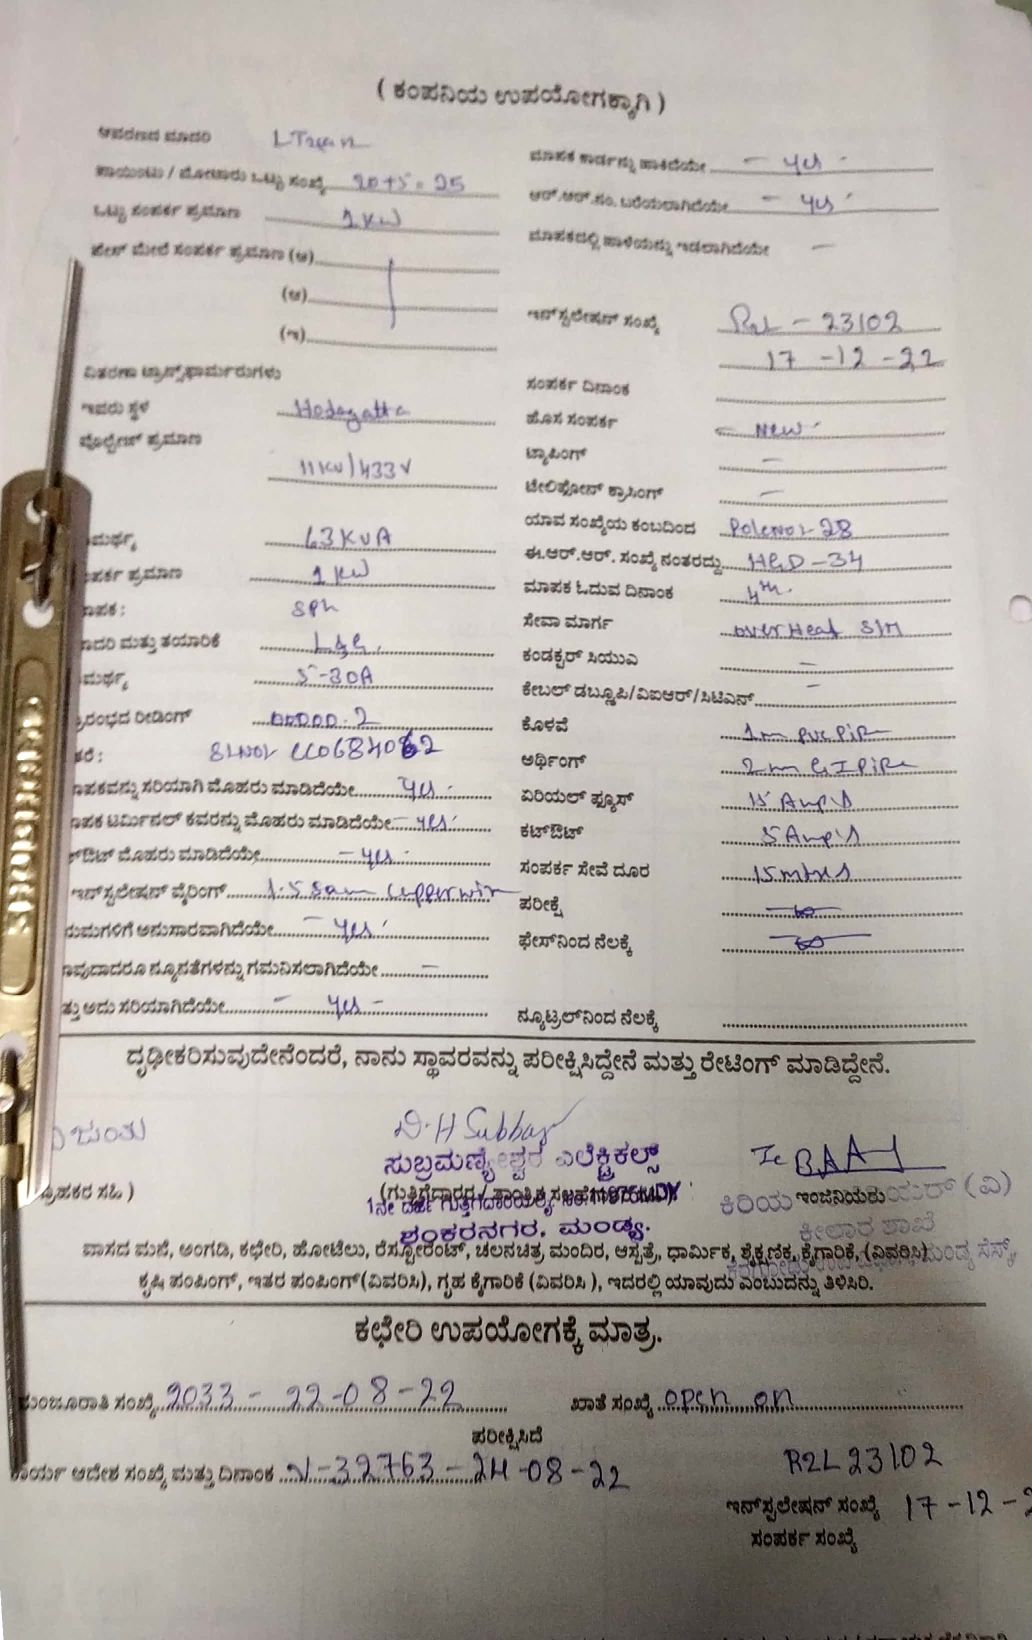 ( ಕಂಪನಿಯ ಉಪಯೋಗಕ್ಕಾಗಿ )
ಆವರಣದ ಮಾದರಿ
ಮಾಪಕ ಕಾರ್ಡನ್ನು ಹಾಕಿದೆಯೇ - yes -
ಪಾಯಿಂಟು / ಮೋಟಾರು ಒಟ್ಟು ಸಂಖ್ಯೆ 20+5=25
ಆರ್.ಆರ್.ಸಂ. ಬರೆಯಲಾಗಿದೆಯೇ - yes -
ಒಟ್ಟು ಸಂಪರ್ಕ ಪ್ರಮಾಣ 1 KW
ಮಾಪಕದಲ್ಲಿ ಹಾಳೆಯನ್ನು ಇಡಲಾಗಿದೆಯೇ -
ಫೇಸ್ ಮೇಲೆ ಸಂಪರ್ಕ ಪ್ರಮಾಣ (ಅ)
(ಆ)
(ಇ)
ಇನ್‌ಸ್ಟಲೇಷನ್ ಸಂಖ್ಯೆ R2L - 23102
17-12-22
ವಿತರಣಾ ಟ್ರಾನ್ಸ್‌ಫಾರ್ಮರುಗಳು
ಸಂಪರ್ಕ ದಿನಾಂಕ
ಇವರು ಸ್ಥಳ Hodagatta
ಹೊಸ ಸಂಪರ್ಕ - New -
ವೋಲ್ಟೇಜ್ ಪ್ರಮಾಣ
11KV/433V
ಟ್ಯಾಪಿಂಗ್ -
ಟೇಲಿಫೋನ್ ಕ್ರಾಸಿಂಗ್ -
ಯಾವ ಸಂಖ್ಯೆಯ ಕಂಬದಿಂದ PoleNo:- 28
ಮರ್ಥ್ಯ 63KVA
ಈ.ಆರ್.ಆರ್. ಸಂಖ್ಯೆ ನಂತರದ್ದು HGD-34
ಪರ್ಕ ಪ್ರಮಾಣ 1 KW
ಮಾಪಕ ಓದುವ ದಿನಾಂಕ 4th.
ಾಪಕ: SPh
ಸೇವಾ ಮಾರ್ಗ over Heat S/M
ಾದರಿ ಮತ್ತು ತಯಾರಿಕೆ L&G.
ಕಂಡಕ್ಟರ್ ಸಿಯುಎ -
ಮರ್ಥ್ಯ 5-30A
ಕೇಬಲ್ ಡಬ್ಲ್ಯೂಪಿ/ವಿಐಆರ್/ಸಿಟಿಎನ್ -
್ರಾರಂಭದ ರೀಡಿಂಗ್ 00000.2
ಕೊಳವೆ 1m PVC PiPe
ತರೆ: SLNo:- CC0684082
ಅರ್ಥಿಂಗ್ 2m GI PiPe
ಾಪಕವನ್ನು ಸರಿಯಾಗಿ ಮೊಹರು ಮಾಡಿದೆಯೇ yes -
ಏರಿಯಲ್ ಫ್ಯೂಸ್ 15 Amp's
ಾಪಕ ಟರ್ಮಿನಲ್ ಕವರನ್ನು ಮೊಹರು ಮಾಡಿದೆಯೇ - yes -
ಕಟ್‌ಔಟ್ 5 Amp's
್‌ಔಟ್ ಮೊಹರು ಮಾಡಿದೆಯೇ - yes -
ಸಂಪರ್ಕ ಸೇವೆ ದೂರ 15 mtrs
ಇನ್‌ಸ್ಟಲೇಷನ್ ವೈರಿಂಗ್ 1.5 Sqm Copperwire
ಪರೀಕ್ಷೆ
ಯಮಗಳಿಗೆ ಅನುಸಾರವಾಗಿದೆಯೇ - yes -
ಫೇಸ್‌ನಿಂದ ನೆಲಕ್ಕೆ
ಾವುದಾದರೂ ನ್ಯೂನತೆಗಳನ್ನು ಗಮನಿಸಲಾಗಿದೆಯೇ -
ತ್ತು ಅದು ಸರಿಯಾಗಿದೆಯೇ - yes -
ನ್ಯೂಟ್ರಲ್‌ನಿಂದ ನೆಲಕ್ಕೆ
ದೃಢೀಕರಿಸುವುದೇನೆಂದರೆ, ನಾನು ಸ್ಥಾವರವನ್ನು ಪರೀಕ್ಷಿಸಿದ್ದೇನೆ ಮತ್ತು ರೇಟಿಂಗ್ ಮಾಡಿದ್ದೇನೆ.
D.H Subbay
ಸುಬ್ರಮಣ್ಯೇಶ್ವರ ಎಲೆಕ್ಟ್ರಿಕಲ್ಸ್
್ರಾಹಕರ ಸಹಿ )
ಕಿರಿಯ ಇಂಜಿನಿಯರು (ವಿ)
ಶಂಕರನಗರ, ಮಂಡ್ಯ.
ಕೀಲಾರ ಶಾಖೆ
ವಾಸದ ಮನೆ, ಅಂಗಡಿ, ಕಛೇರಿ, ಹೋಟೆಲು, ರೆಸ್ಟೋರೆಂಟ್, ಚಲನಚಿತ್ರ, ಮಂದಿರ, ಆಸ್ಪತ್ರೆ, ಧಾರ್ಮಿಕ, ಶೈಕ್ಷಣಿಕ, ಕೈಗಾರಿಕೆ, (ವಿವರಿಸಿ)
ಕೃಷಿ ಪಂಪಿಂಗ್, ಇತರ ಪಂಪಿಂಗ್(ವಿವರಿಸಿ), ಗೃಹ ಕೈಗಾರಿಕೆ (ವಿವರಿಸಿ ), ಇದರಲ್ಲಿ ಯಾವುದು ಎಂಬುದನ್ನು ತಿಳಿಸಿರಿ.
ಕಛೇರಿ ಉಪಯೋಗಕ್ಕೆ ಮಾತ್ರ.
ಮಂಜೂರಾತಿ ಸಂಖ್ಯೆ 2033 - 22-08-22
ಖಾತೆ ಸಂಖ್ಯೆ open on
ಪರೀಕ್ಷಿಸಿದೆ
ಕಾರ್ಯ ಆದೇಶ ಸಂಖ್ಯೆ ಮತ್ತು ದಿನಾಂಕ N-32763-24-08-22
R2L 23102
ಇನ್‌ಸ್ಟಲೇಷನ್ ಸಂಖ್ಯೆ 17-12-2
ಸಂಪರ್ಕ ಸಂಖ್ಯೆ